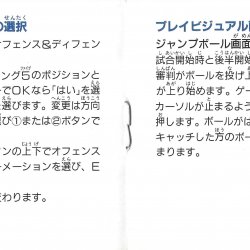 の選択
オフェンス&ディフェン
ング5のポジションと
でOKなら「はい」を選
を選びます。変更は方向
び①または②ボタンで
ンの上下でオフェンス
ーメーションを選び、E
わります。
プレイビジュアル
ジャンプボール画面
試合開始時と後半開始
審判がボールを投げ
が上り始めます。ゲー
カーソルが止まるよう
押します。ボールが
キャッチした方のボー
まります。